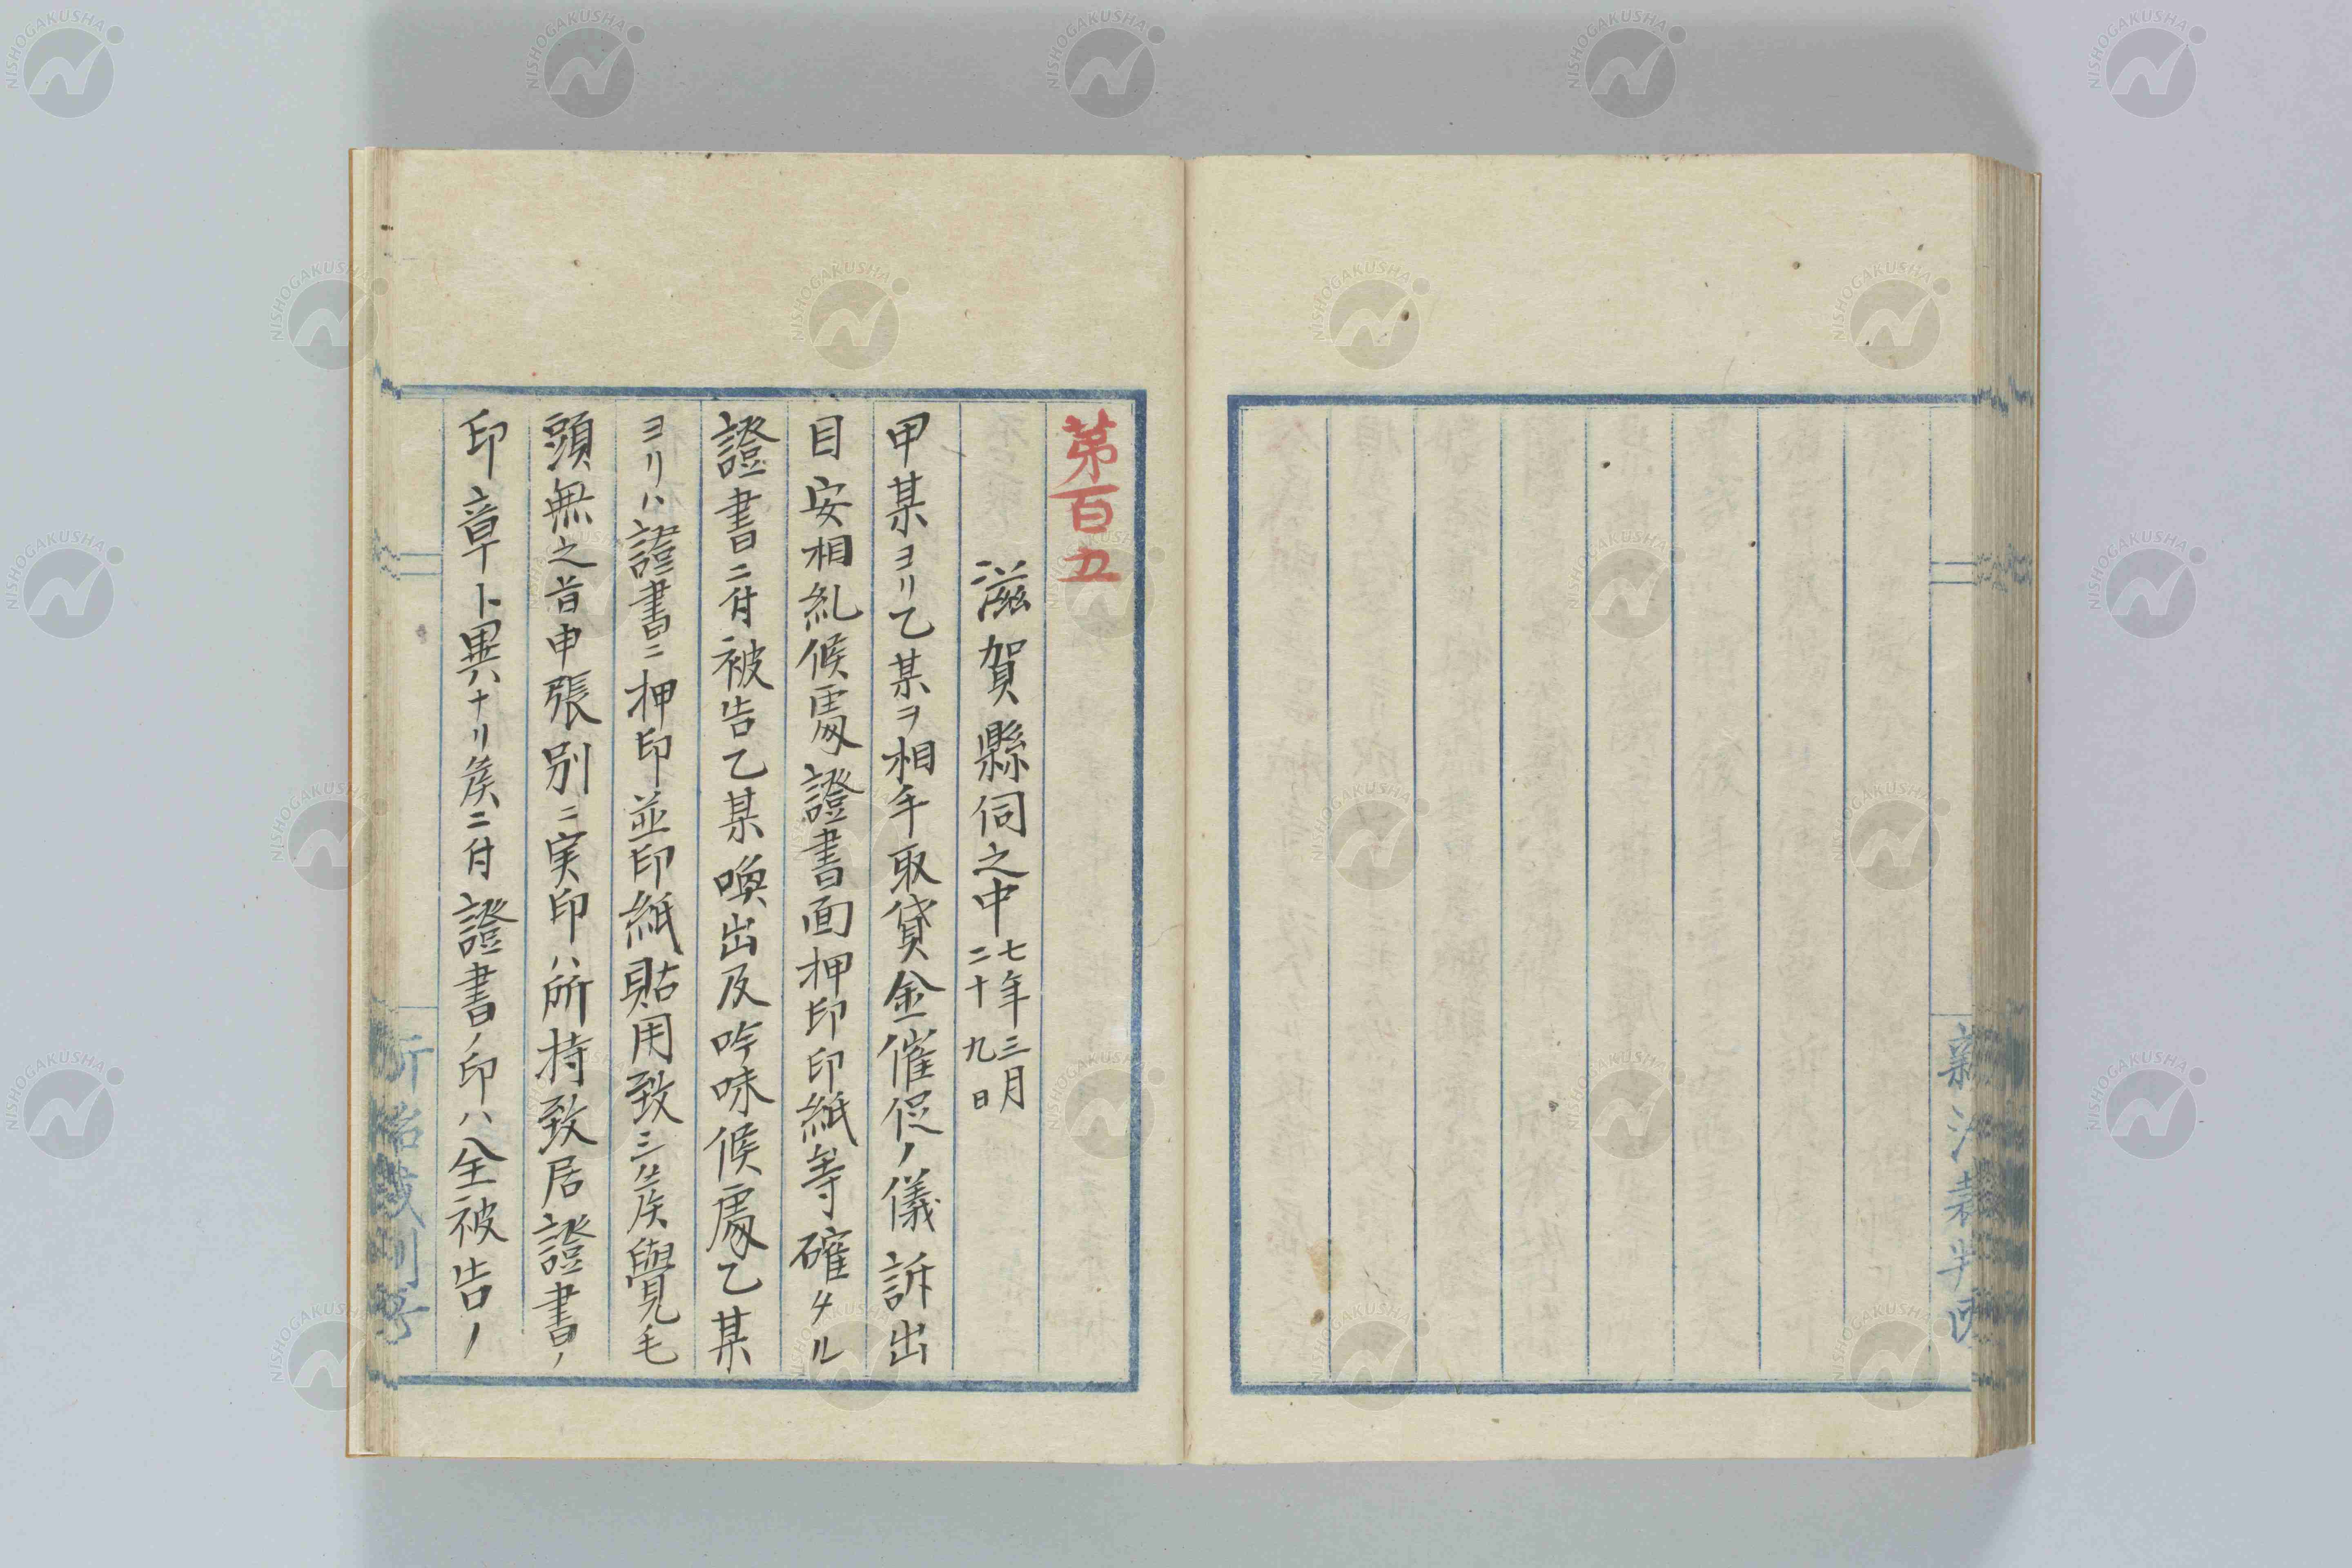 第百五
滋賀縣伺之中 七年三月二十九日
甲某ヨリ乙某ヲ相手取貸金催促ノ儀訴出
目安相糺候處證書面押印印紙等確タル
證書ニ付被告乙某喚出及吟味候處乙某
ヨリハ證書ニ押印並印紙貼用致シ候覺毛
頭無之旨申張別ニ実印ハ所持致居證書ノ
印章ト異ナリ候ニ付證書ノ印ハ全被告ノ
NISHOGAKUSHA